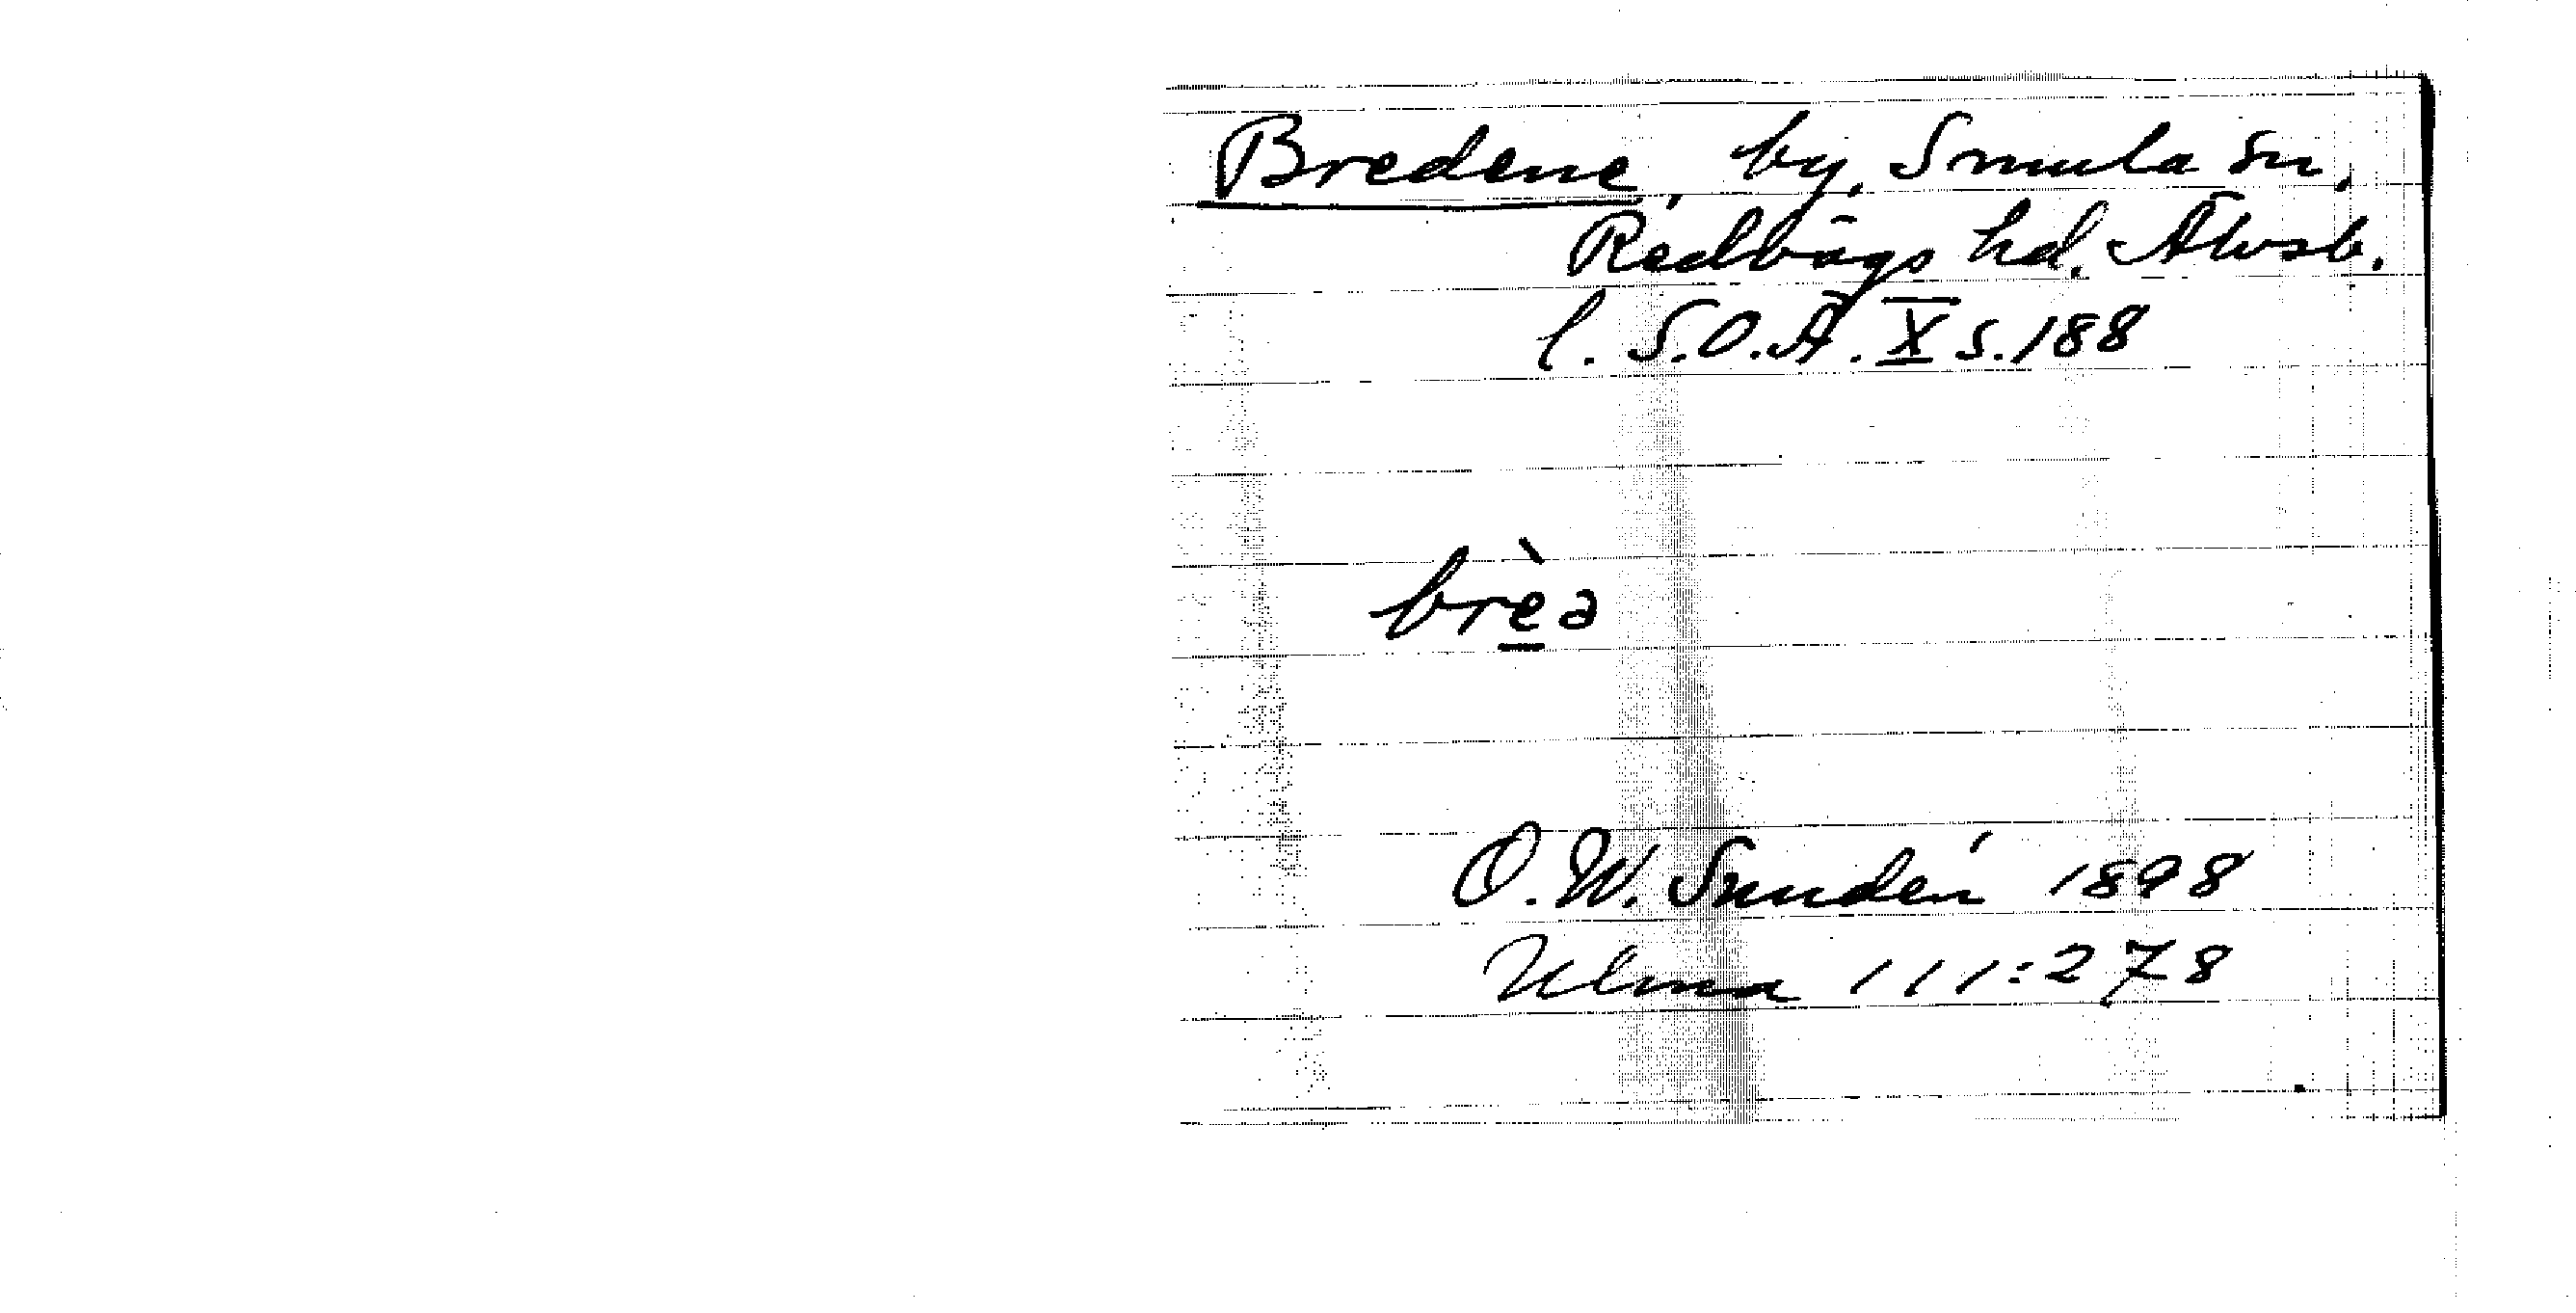 Bredene, by, Smula sn,
Redvägs hd. Älvsb.
l. S.O.Ä. X s. 188
brèə
O. W. Sundén 1898
Ulma 111:278